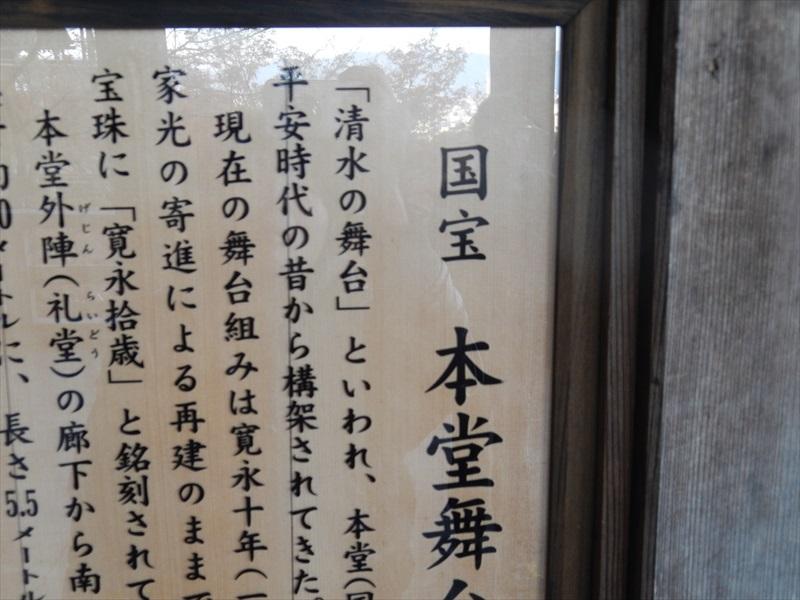 国宝 本堂舞台
「清水の舞台」といわれ、本堂(国
平安時代の昔から構架されてきた。
現在の舞台組みは寛永十年(一
家光の寄進による再建のままで
宝珠に「寛永拾歳」と銘刻されて
本堂外陣(礼堂)の廊下から南
げじん らいどう
メートルに、長さ5.5メートル